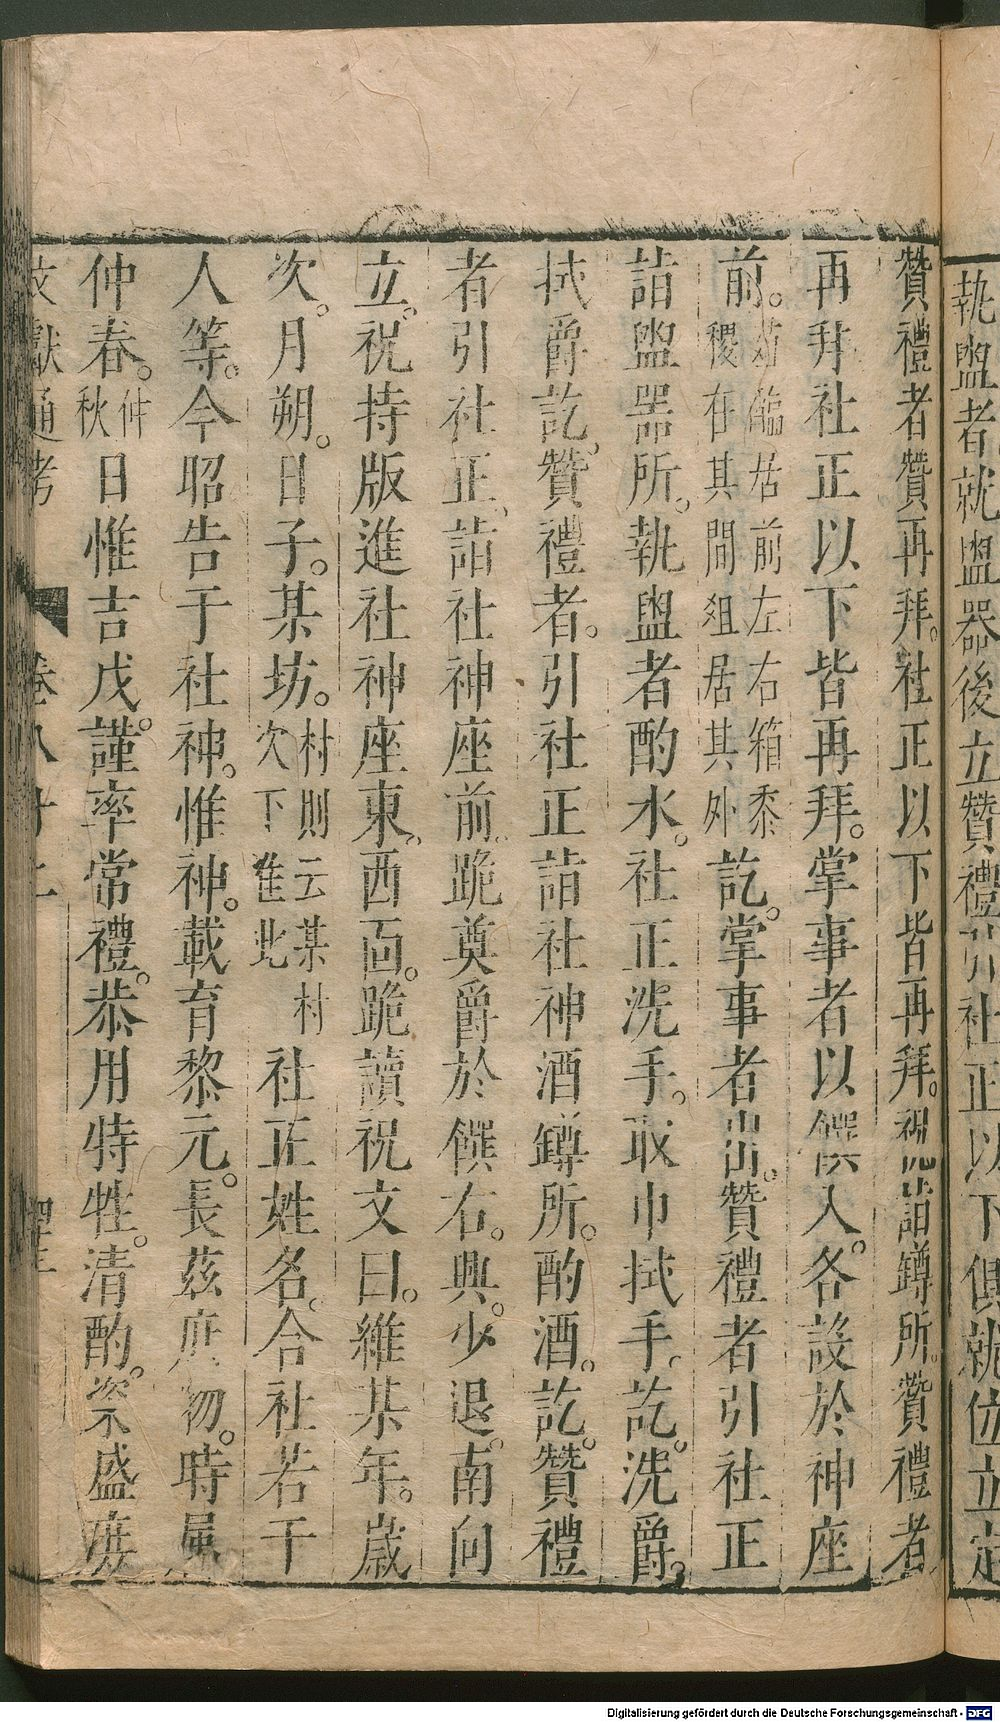 執盥者就盥器後立贊禮引社正以下俱就位立定
贊禮者贊再拜。社正以下皆再拜。祝以詣罇所。贊禮者
再拜社正以下皆再拜。掌事者以饌入。各設於神座
前。若臨居前左右箱黍稷在其間俎居其外訖。掌事者出。贊禮者引社正
詣盥器所。執盥者酌水。社正洗手。取巾拭手。訖。洗爵。
拭爵訖。贊禮者。引社正詣社神酒罇所。酌酒。訖。贊禮
者引社正、詣社神座前。跪奠爵於饌右。興。少退。南向
立。祝持版進社神座東。西面。跪讀祝文曰。維某年。歲
次。月朔。日子。某坊。村則云某村次下準此社正姓名。合社若干
人等。今昭告于社神。惟神。載育黎元。長茲庶物。時屬
仲春。仲秋日惟吉戊。謹率常禮。恭用特牲。清酌。粢盛庶
文獻通考 卷八十二
Digitalisierung gefördert durch die Deutsche Forschungsgemeinschaft - DFG